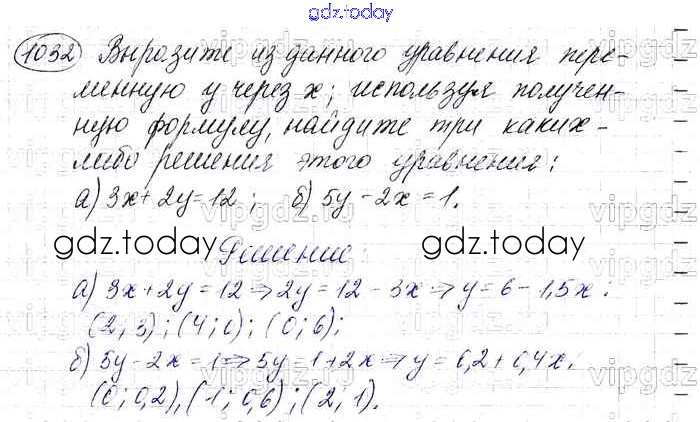 gdz.today
1032 Выразите из данного уравнения пере-
менную y через x; используя получен-
ную формулу, найдите три каких-
либо решения этого уравнения:
а) 3x+2y=12; б) 5y-2x=1.
gdz.today gdz.today
Решение:
а) 3x+2y=12⇒2y=12-3x⇒y=6-1,5x:
(2,3);(4;0);(0;6);
б) 5y-2x=1⇒5y=1+2x⇒y=0,2+0,4x:
(0;0,2),(1;0,6);(2;1).